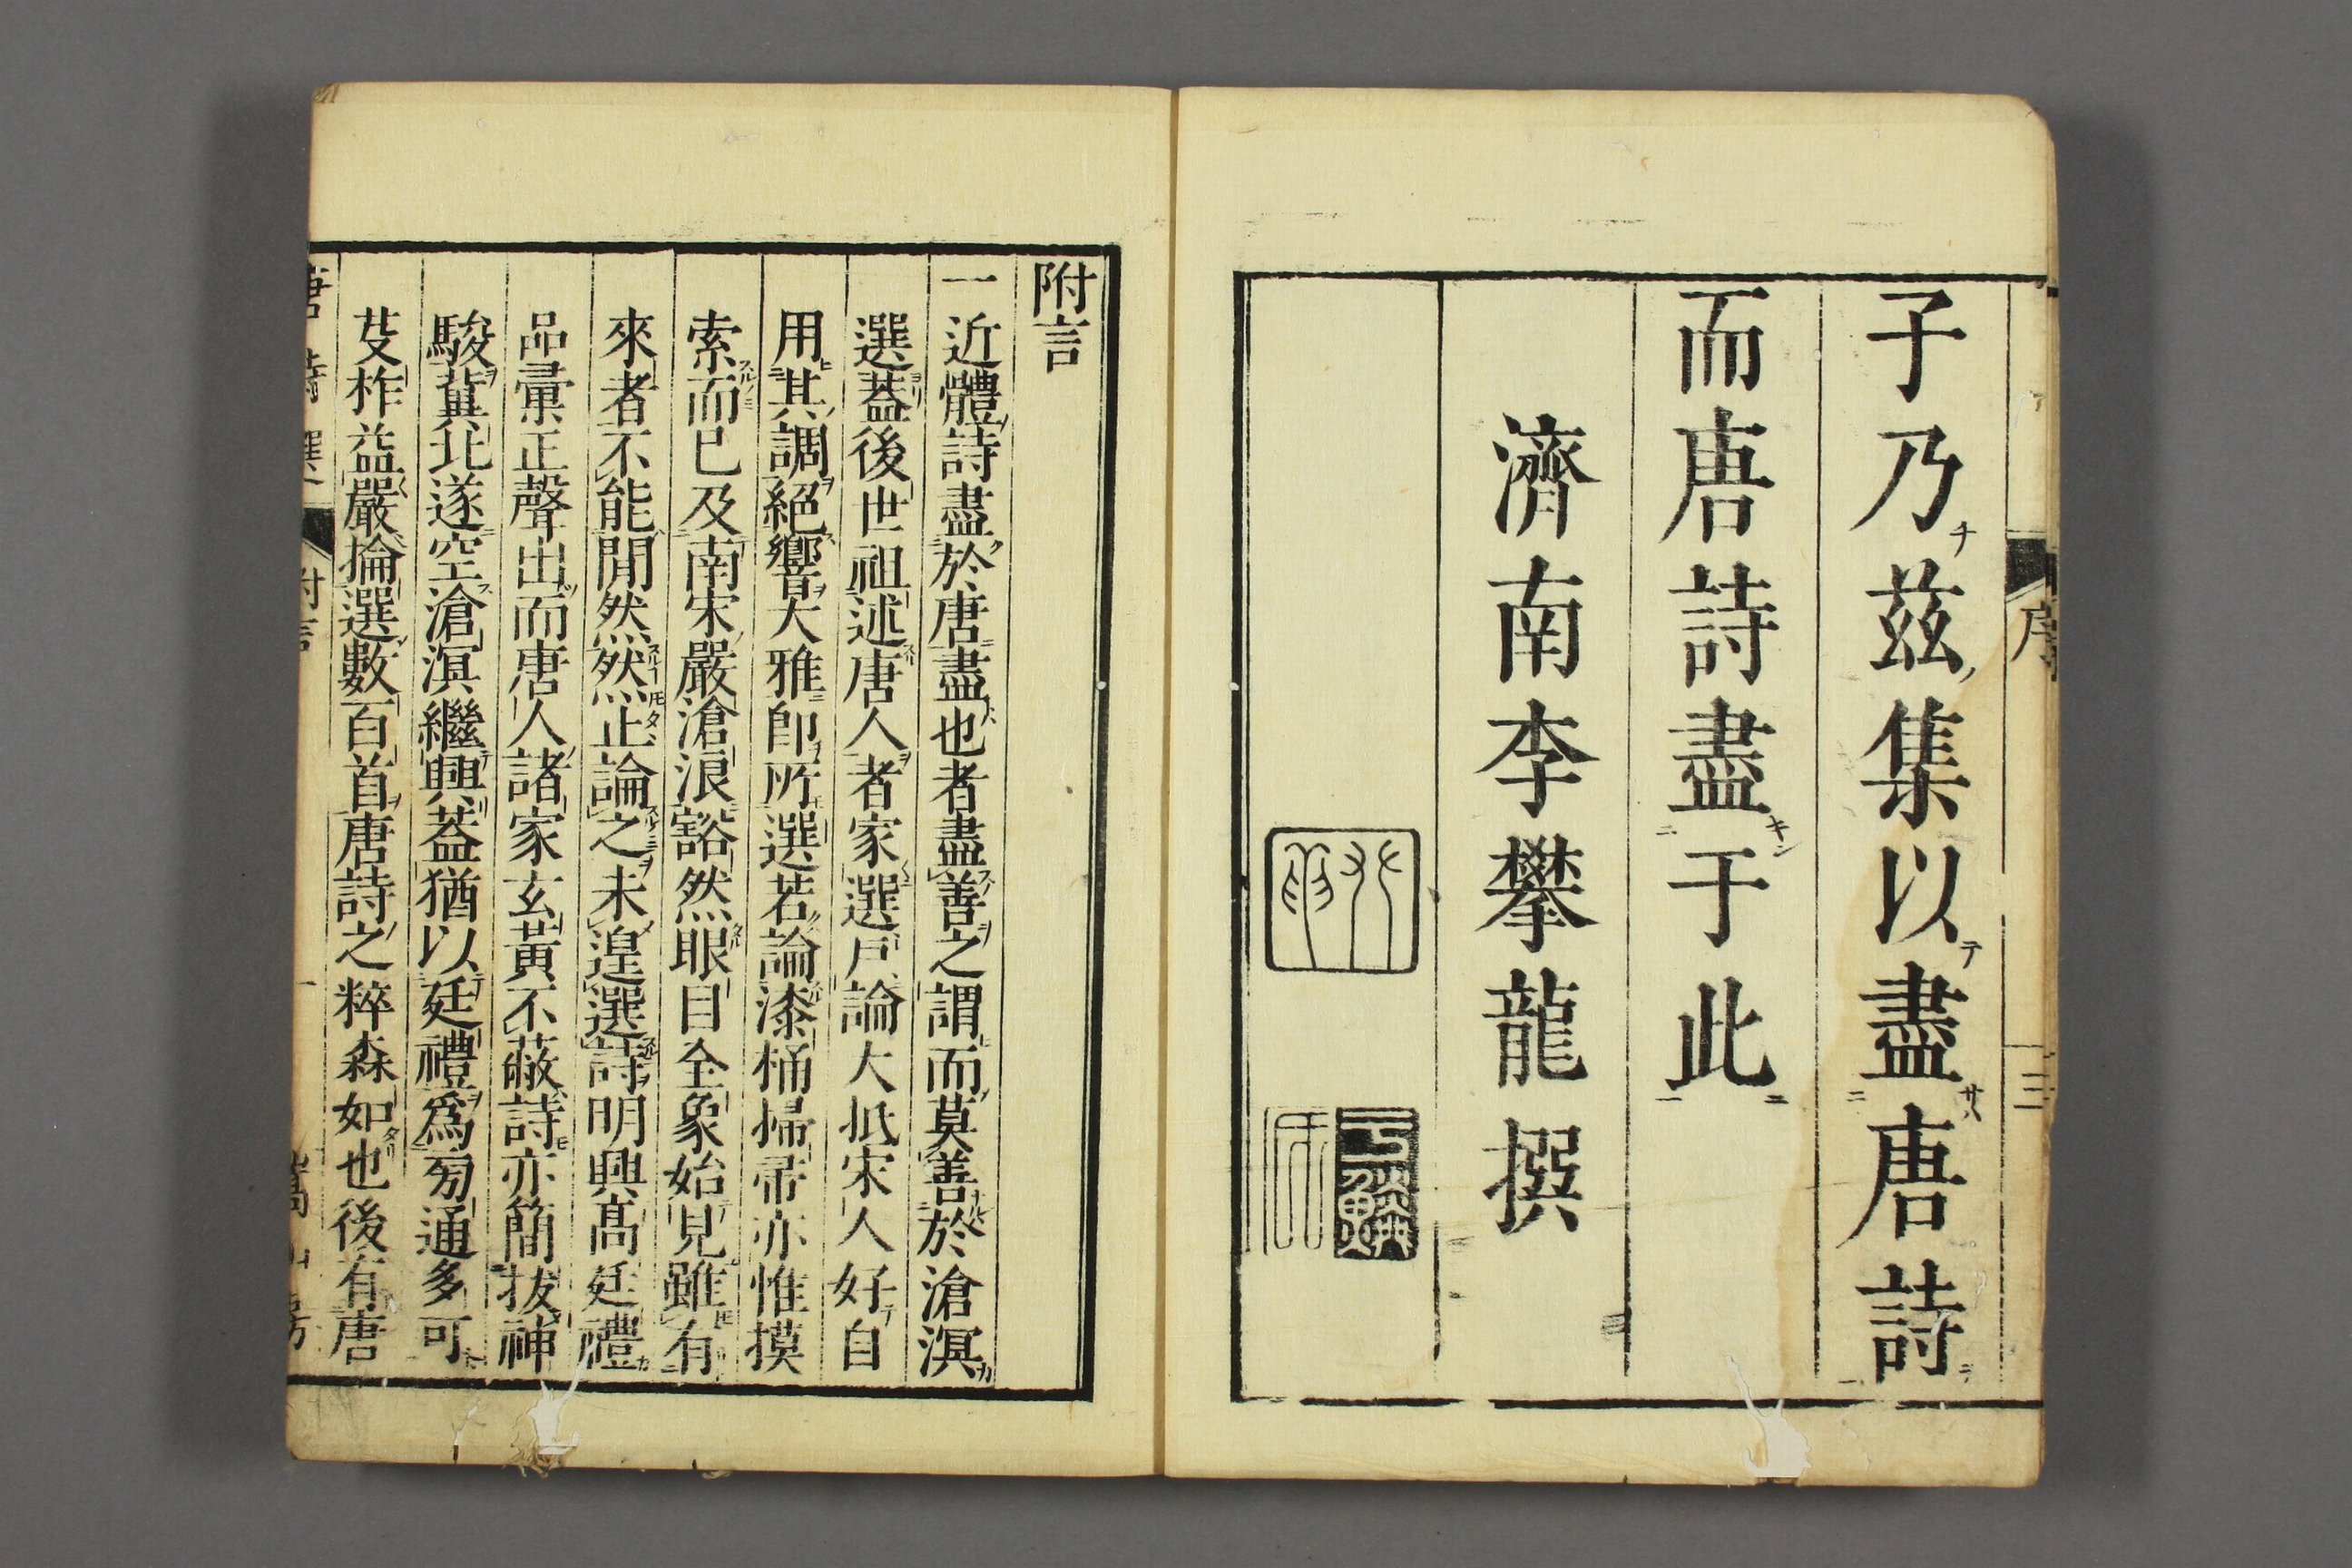 序
三
子乃茲集以盡唐詩
而唐詩盡于此
濟南李攀龍撰
附言
一近體詩盡於唐盡也者盡善之謂而莫善於滄溟
選蓋後世祖述唐人者家選戶論大抵宋人好自
用其調絕響大雅卽所選若論漆桶掃帚亦惟摸
索而已及南宋嚴滄浪豁然眼目全象始見雖有
來者不能閒然然止論之未遑選詩明興髙廷禮
品彙正聲出而唐人諸家玄黃不蔽詩亦簡拔神
駿冀北遂空滄溟繼興葢猶以廷禮爲芻通多可
芟柞益嚴掄選數百首唐詩之粹森如也後有唐
唐詩選
附言
一
嵩山房